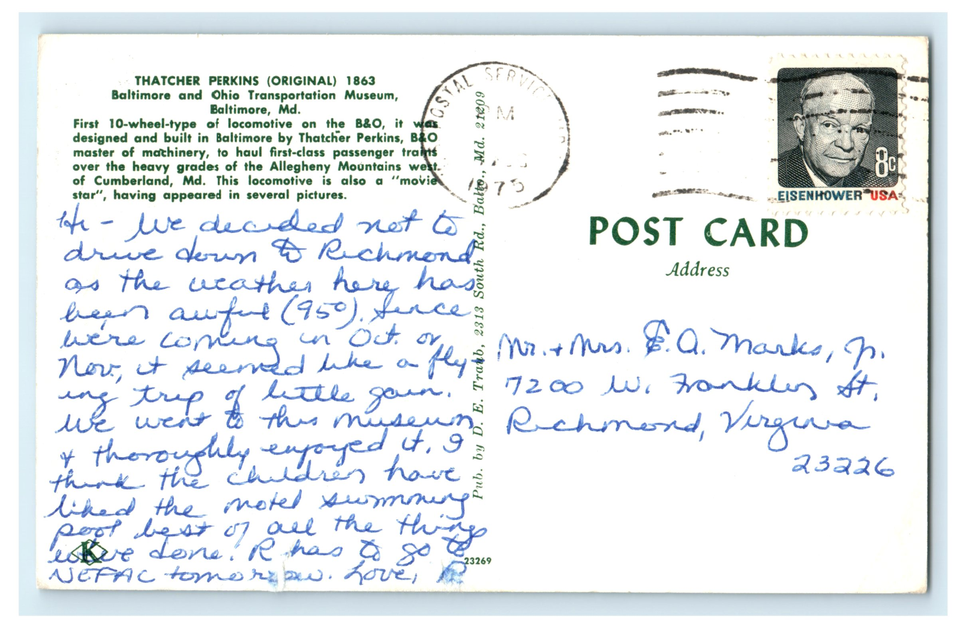 THATCHER PERKINS (ORIGINAL) 1863
Baltimore and Ohio Transportation Museum,
Baltimore, Md.
First 10-wheel-type of locomotive on the B&O, it was
designed and built in Baltimore by Thatcher Perkins, B&O
master of machinery, to haul first-class passenger trains
over the heavy grades of the Allegheny Mountains west
of Cumberland, Md. This locomotive is also a "movie
star", having appeared in several pictures.
Hi - We decided not to
drive down to Richmond
as the weather here has
been awful (95°). Since
we're coming in Oct. or
Nov, it seemed like a fly-
ing trip of little gain.
We went to this museum
& thoroughly enjoyed it. I
think the children have
liked the motel swimming
pool best of all the things
we've done. R has to go to
NEFAC tomorrow. Love, R
K
23269
Pub. by D. E. Traub, 2313 South Rd., Balto., Md. 21209
POSTAL SERVICE
M
1975
8c
EISENHOWER USA
POST CARD
Address
Mr. + Mrs. E. A. Marks, Jr.
7200 W. Franklin St.
Richmond, Virginia
23226